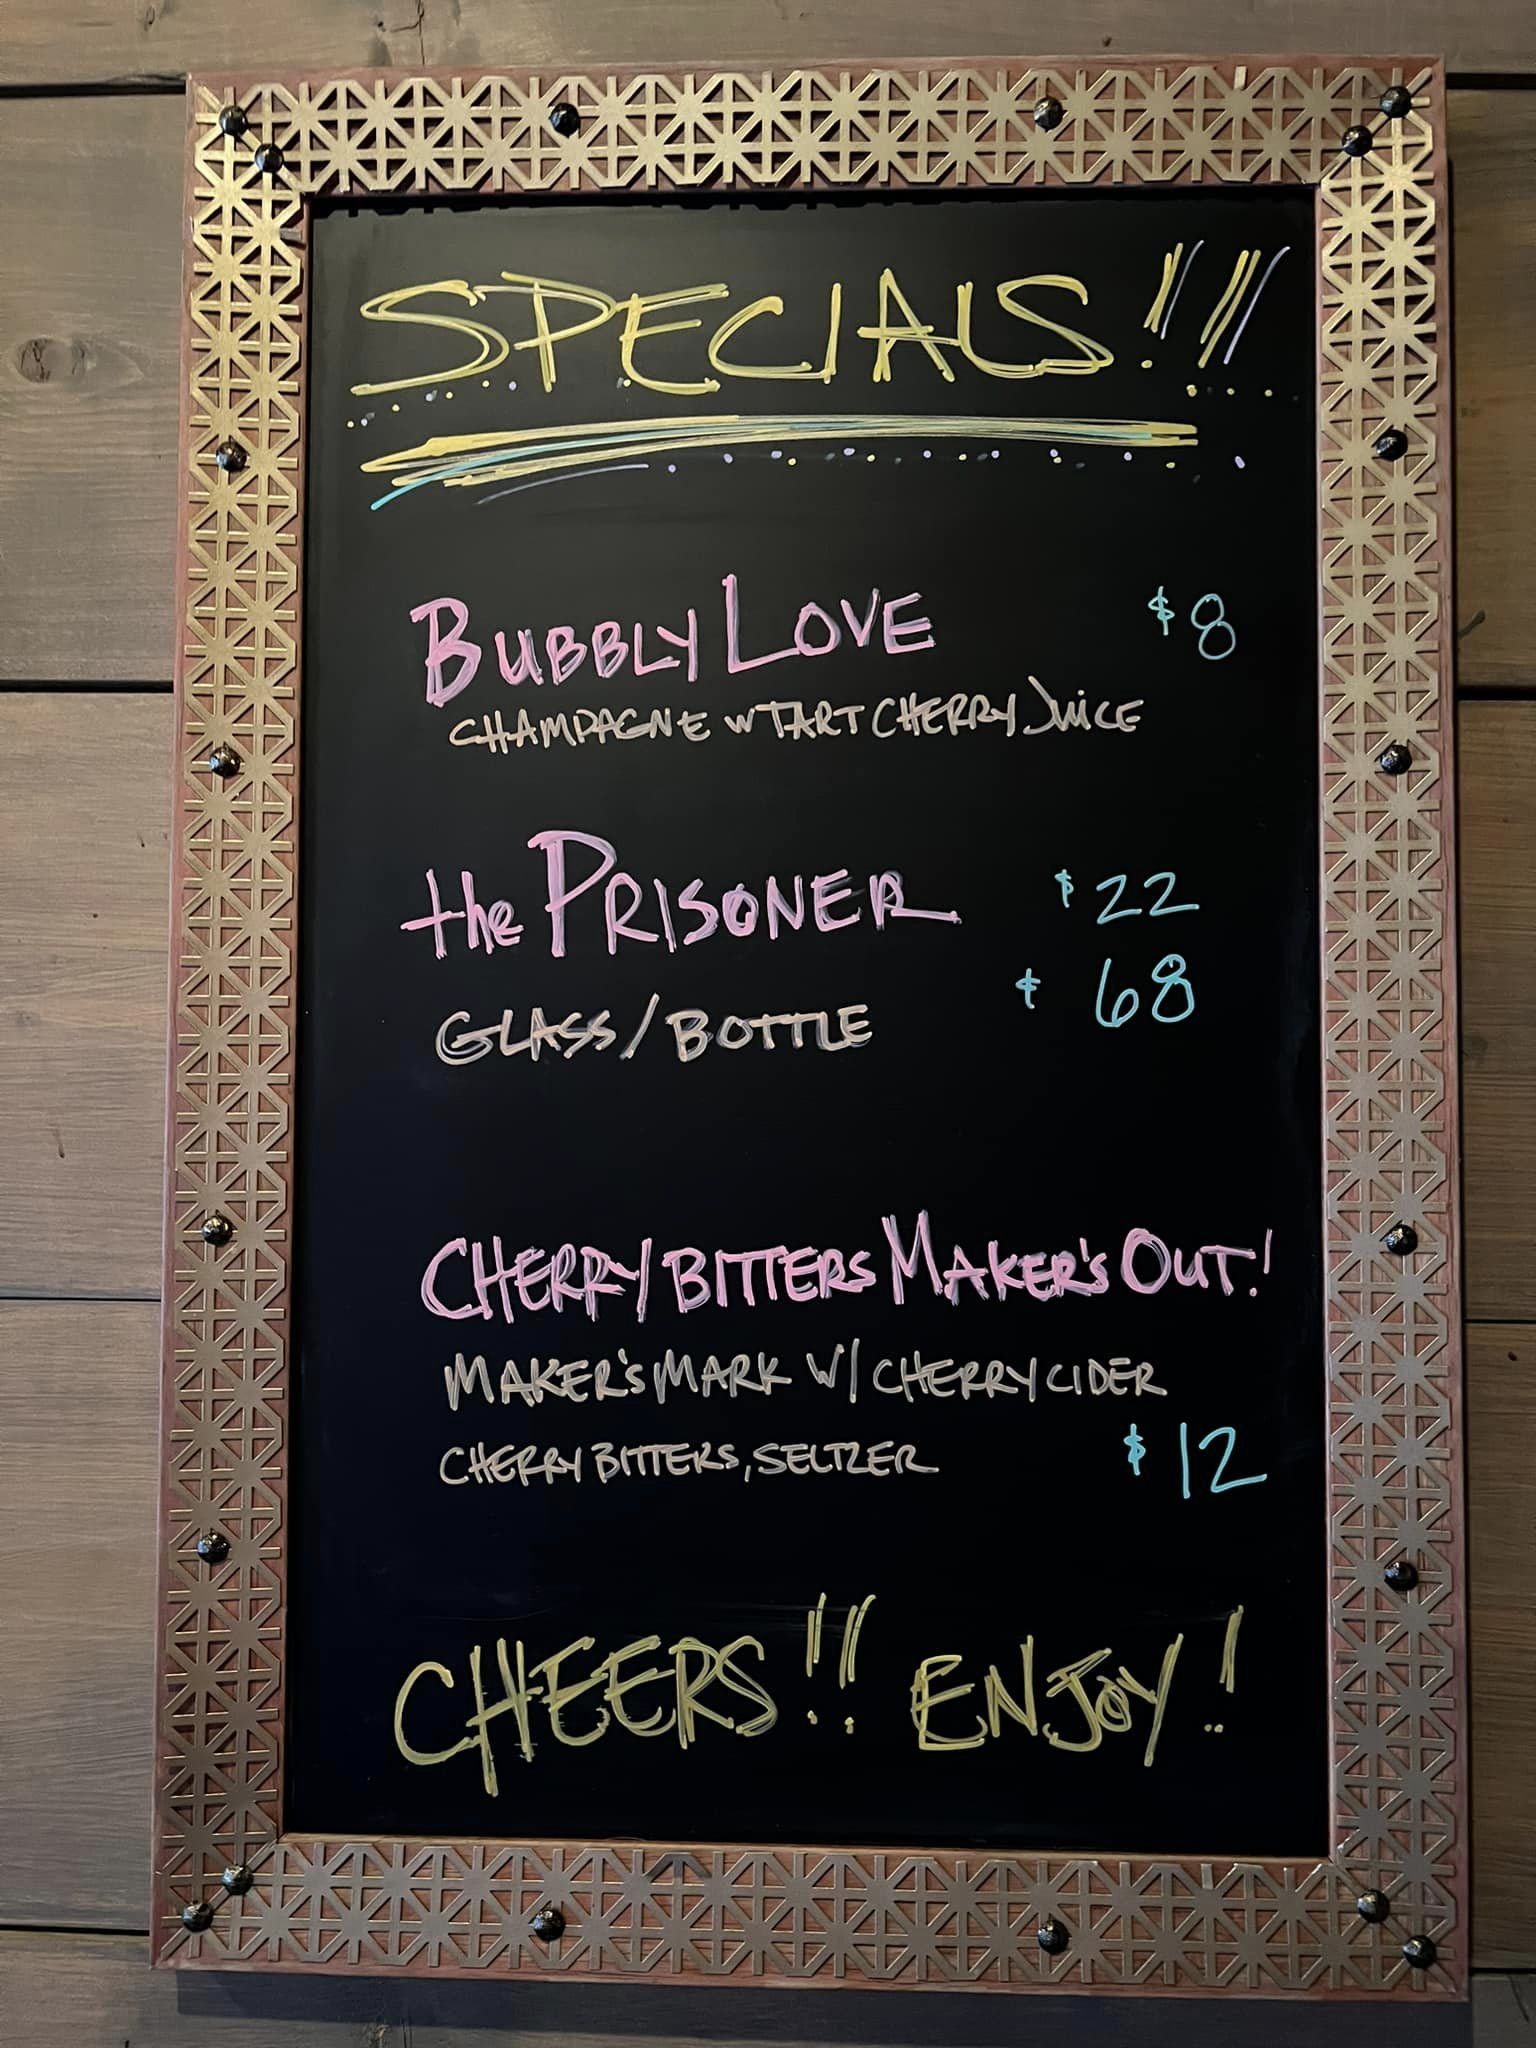 SPECIALS!!!
BUBBLY LOVE $8
CHAMPAGNE W TART CHERRY JUICE
the PRISONER $22
$68
GLASS/BOTTLE
CHERRY BITTERS MAKER'S OUT!
MAKER'S MARK W/ CHERRY CIDER
CHERRY BITTERS, SELTZER $12
CHEERS!!! ENJOY!